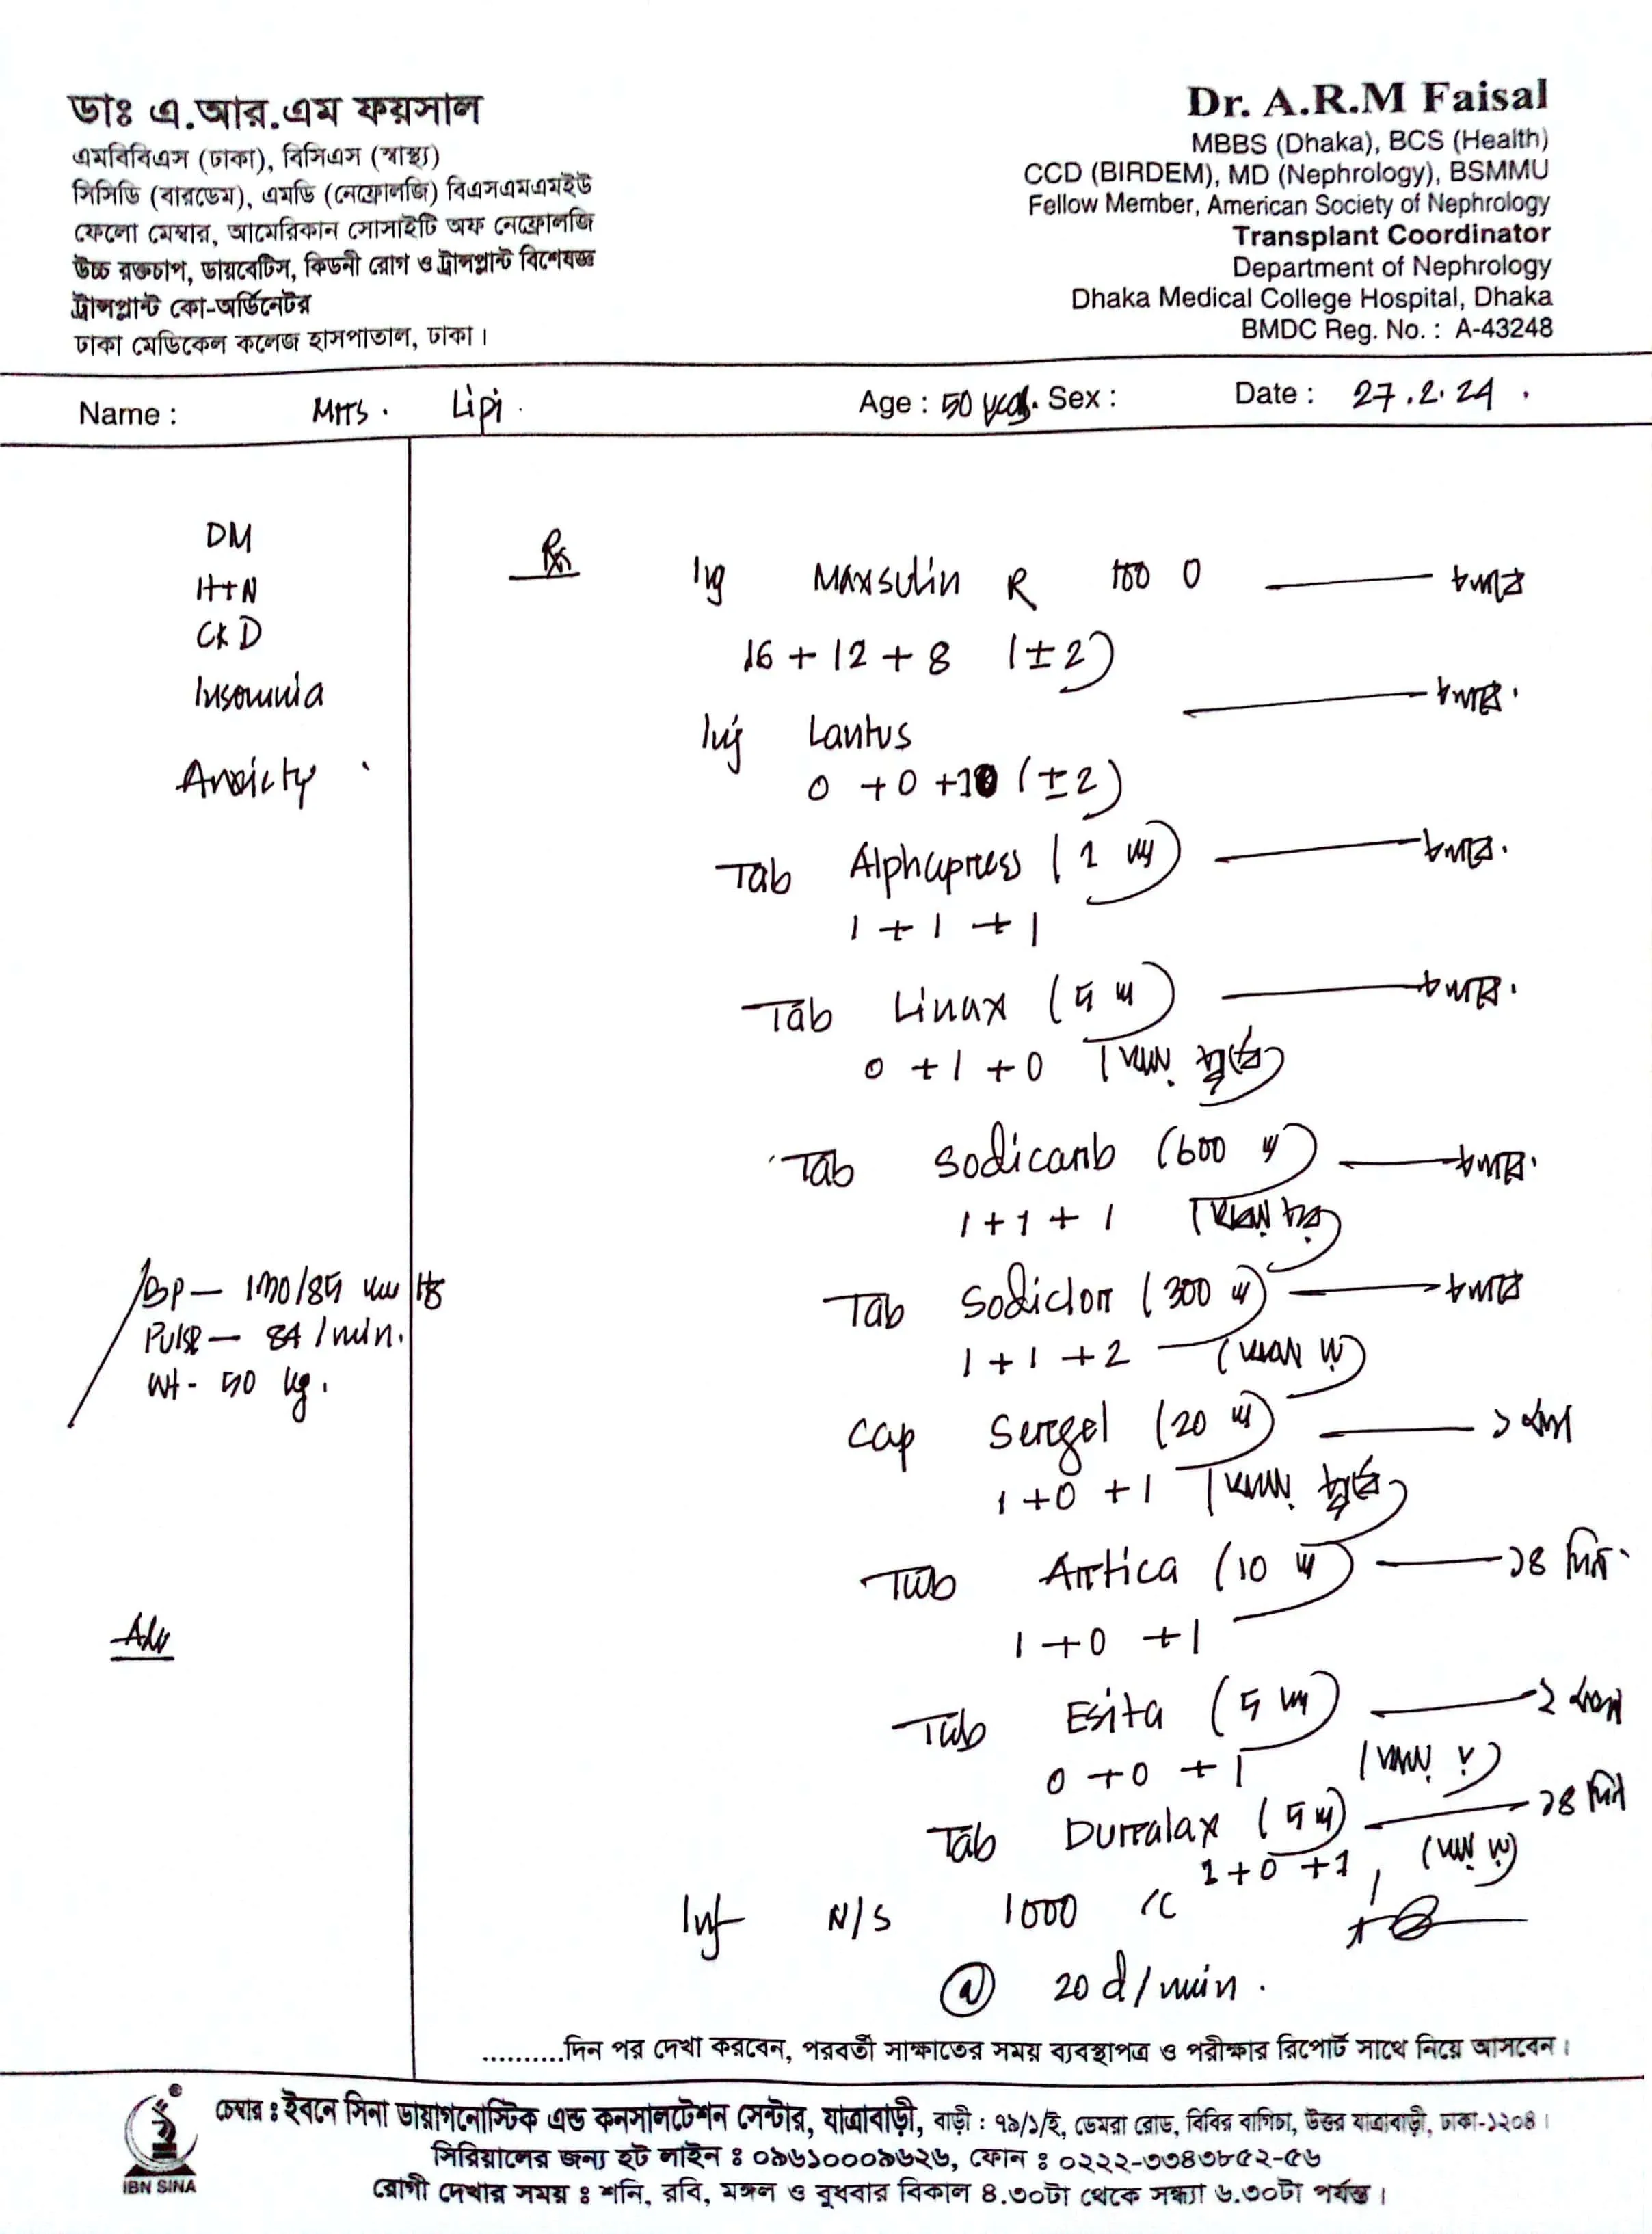 ডাঃ এ.আর.এম ফয়সাল
এমবিবিএস (ঢাকা), বিসিএস (স্বাস্থ্য)
সিসিডি (বারডেম), এমডি (নেফ্রোলজি) বিএসএমএমইউ
ফেলো মেম্বার, আমেরিকান সোসাইটি অফ নেফ্রোলজি
উচ্চ রক্তচাপ, ডায়বেটিস, কিডনী রোগ ও ট্রান্সপ্লান্ট বিশেষজ্ঞ
ট্রান্সপ্লান্ট কো-অর্ডিনেটর
ঢাকা মেডিকেল কলেজ হাসপাতাল, ঢাকা।
Dr. A.R.M Faisal
MBBS (Dhaka), BCS (Health)
CCD (BIRDEM), MD (Nephrology), BSMMU
Fellow Member, American Society of Nephrology
Transplant Coordinator
Department of Nephrology
Dhaka Medical College Hospital, Dhaka
BMDC Reg. No. : A-43248
Name : Mrs. Lipi. Age : 50 years. Sex : Date : 27.2.24.
DM
HTN
CKD
Insomnia
Anxiety
BP - 130/85 mm Hg
Pulse - 84 /min.
Wt - 50 kg.
Adv
Rx
Inj Maxsulin R 100 — চলবে
16 + 12 + 8 (±2)
Inj Lantus — চলবে.
0 + 0 + 10 (±2)
Tab Alphapress (1 mg) — চলবে.
1 + 1 + 1
Tab Linax (5 m) — চলবে.
0 + 1 + 0
Tab Sodicarb (600 m) — চলবে.
1 + 1 + 1
Tab Sodiclor (300 m) — চলবে
1 + 1 + 2
Cap Sergel (20 m) — ১ মাস
1 + 0 + 1
Tab Artica (10 m) — ১৪ দিন
1 + 0 + 1
Tab Esita (5 mg) — ২ মাস
0 + 0 + 1
Tab Duralax (5 m) — ১৪ দিন
1 + 0 + 1
Inf N/S 1000 cc
@ 20 d/min.
..........দিন পর দেখা করবেন, পরবর্তী সাক্ষাতের সময় ব্যবস্থাপত্র ও পরীক্ষার রিপোর্ট সাথে নিয়ে আসবেন।
IBN SINA
চেম্বার : ইবনে সিনা ডায়াগনোস্টিক এন্ড কনসালটেশন সেন্টার, যাত্রাবাড়ী, বাড়ী : ৭৯/১/ই, ডেমরা রোড, বিবির বাগিচা, উত্তর যাত্রাবাড়ী, ঢাকা-১২০৪।
সিরিয়ালের জন্য হট লাইন : ০৯৬১০০০৯৬২৬, ফোন : ০২২২-৩৩৪৩৮৫২-৫৬
রোগী দেখার সময় : শনি, রবি, মঙ্গল ও বুধবার বিকাল ৪.৩০টা থেকে সন্ধ্যা ৬.৩০টা পর্যন্ত।